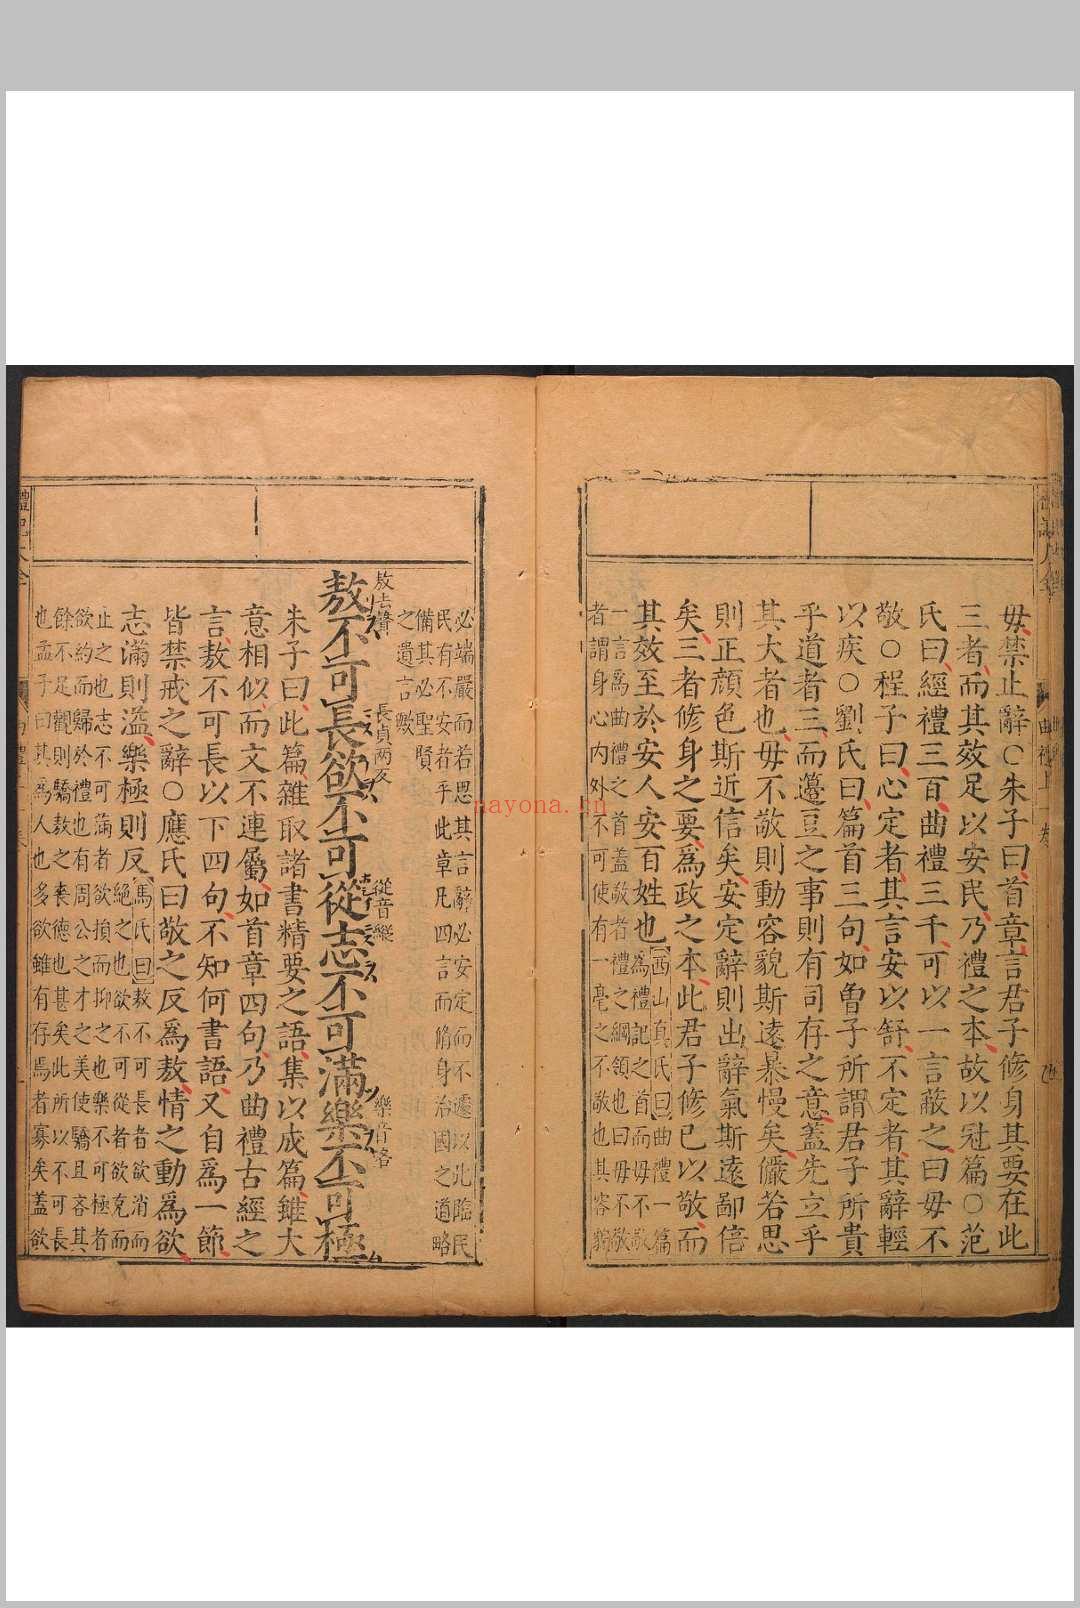 毋禁止辭○朱子曰首章言君子修身其要在此
三者而其效足以安民乃禮之本故以冠篇○范
氏曰經禮三百曲禮三千可以一言蔽之曰毋不
敬○程子曰心定者其言安以舒不定者其辭輕
以疾○劉氏曰篇首三句如曾子所謂君子所貴
乎道者三而籩豆之事則有司存之意蓋先立乎
其大者也毋不敬則動容貌斯遠暴慢矣儼若思
則正顏色斯近信矣安定辭則出辭氣斯遠鄙倍
矣三者修身之要爲政之本此君子修已以敬而
其效至於安人安百姓也
西山真氏曰曲禮一篇
爲禮記之首而毋不敬
一言爲曲禮之首蓋敬者禮之綱領也曰毋不敬
者謂身心內外不可使有一毫之不敬也其容貌
必端嚴而若思其言辭必安定而不遽以此臨民
民有不安者乎此章凡四言而脩身治國之道略
備其必聖賢
之遺言歟
敖去聲 長貞兩反 從音縱 樂音洛
敖不可長欲不可從志不可滿樂不可極
朱子曰此篇雜取諸書精要之語集以成篇雖大
意相似而文不連屬如首章四句乃曲禮古經之
言敖不可長以下四句不知何書語又自爲一節
皆禁戒之辭○應氏曰敬之反爲敖情之動爲欲
志滿則溢樂極則反
馬氏曰敖不可長者欲消而
絕之也欲不可從者欲克而
止之也志不可滿者欲損而抑之也樂不可極者
欲約而歸於禮也有周公之才之美使驕且吝其
餘不足觀則驕敖之喪德也甚矣此所以不可長
也孟子曰其爲人也多欲雖有存焉者寡矣蓋欲
曲禮上
nayona.cn